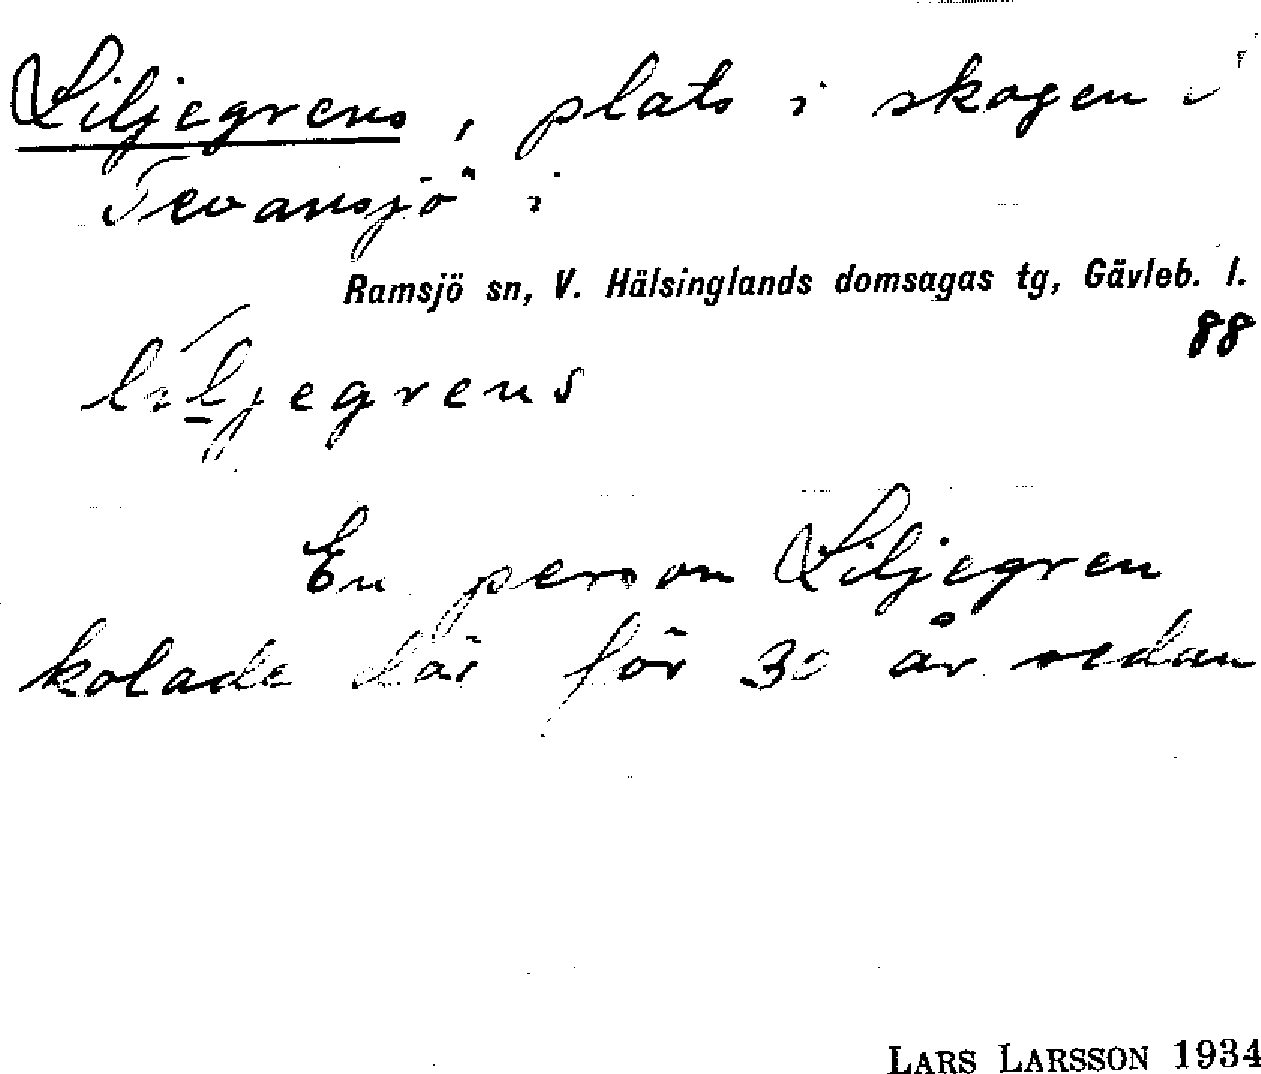 Liljegrens, plats i skogen i
Tevansjö i
Ramsjö sn, V. Hälsinglands domsagas tg, Gävleb. l.
88
liljegrens
En person Liljegren
kolade där för 30 år sedan
LARS LARSSON 1934